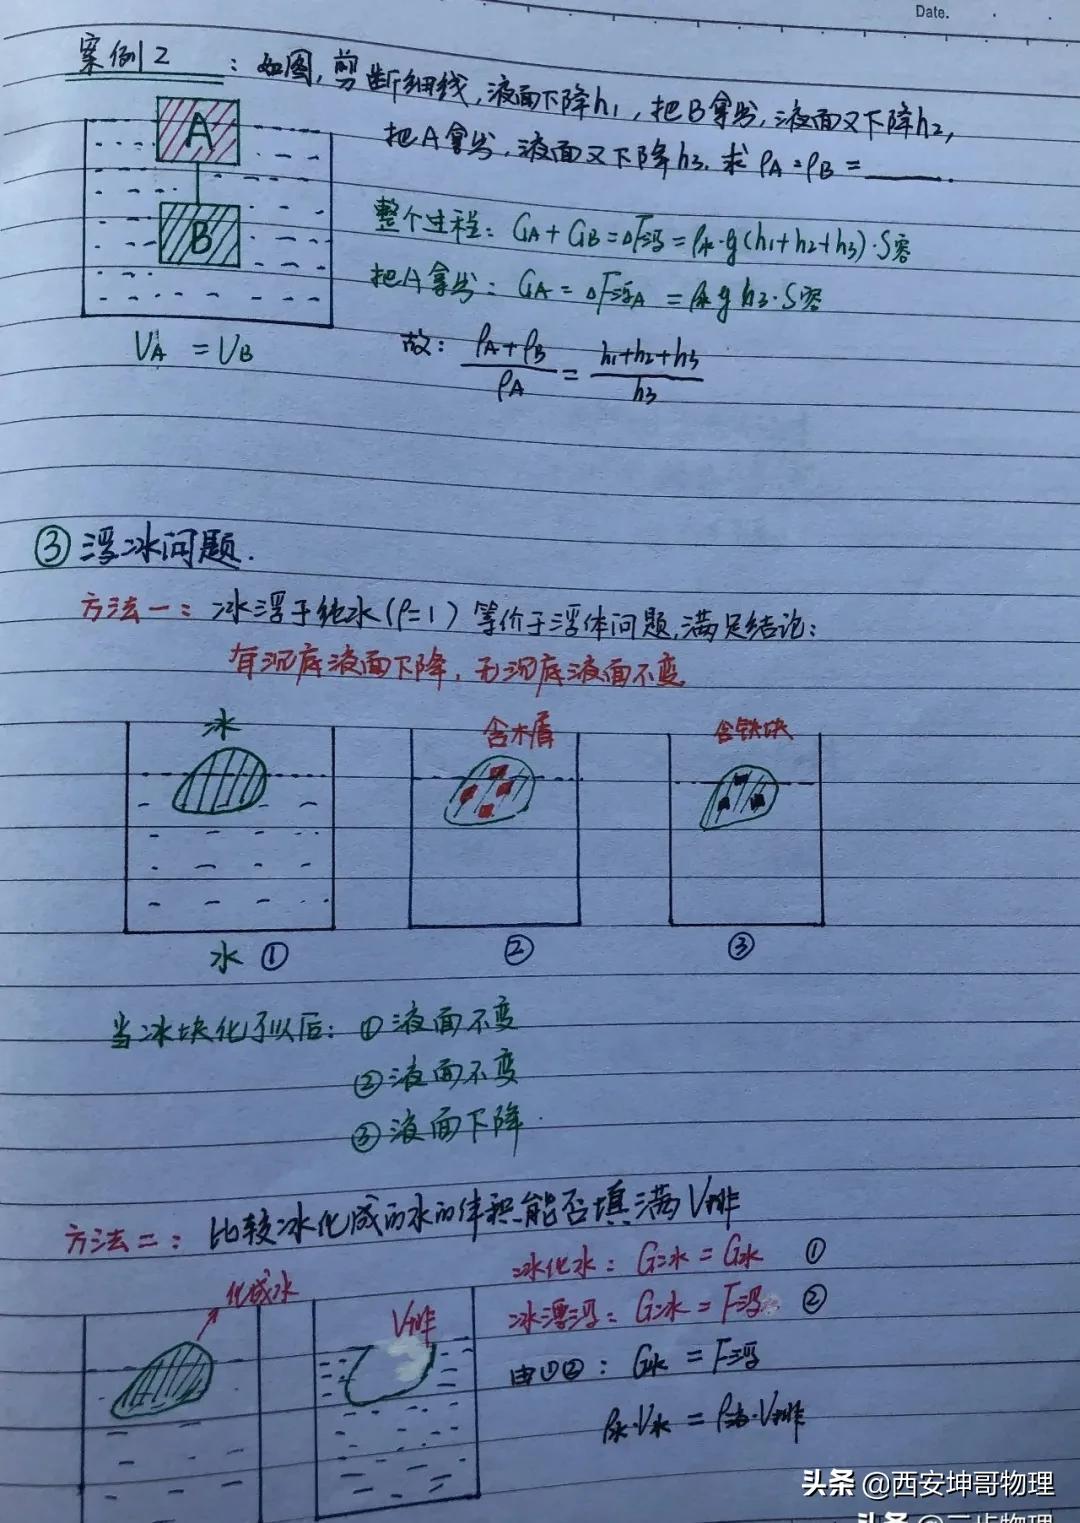 Date.
案例2：如图，剪断细线，液面下降h₁，把B拿出，液面又下降h₂，
把A拿出，液面又下降h₃. 求ρA：ρB = ____.
A
B
VA = VB
整个过程：GA + GB = ΔF浮 = ρ水·g(h₁+h₂+h₃)·S容
把A拿出：GA = ΔF浮A = ρ水g h₃·S容
故：(ρA+ρB)/ρA = (h₁+h₂+h₃)/h₃
③ 浮冰问题.
方法一：冰浮于纯水(ρ=1)等价于浮体问题，满足结论：
有沉底液面下降，无沉底液面不变
冰
含木屑
含铁块
水 ①
②
③
当冰块化了以后：①液面不变
②液面不变
③液面下降.
方法二：比较冰化成的水的体积能否填满V排
化成水
V排
冰化水：G冰 = G水 ①
冰漂浮：G冰 = F浮 ②
由①②：G水 = F浮
ρ水·V水 = ρ液·V排
头条 @西安坤哥物理